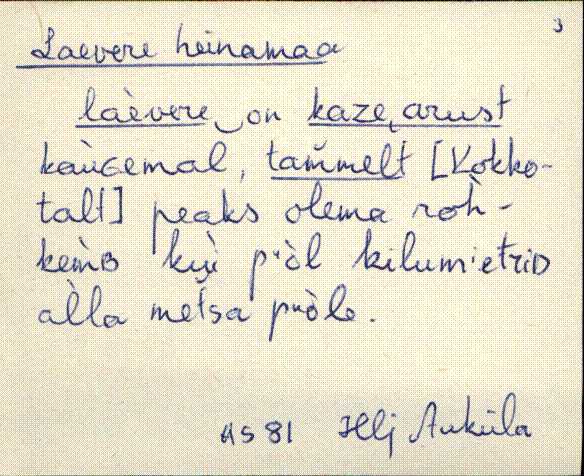 3
Laevere heinamaa
làevere‿on kaze‿arust
kàuGemal, tam̆melt [Kokko-
talt] peaks olema roh̀-
kem̀B kùi pᵘòl kilumᵢetriD
al̀la metsa pᵘòle.
AS 81 Hlj Auküla